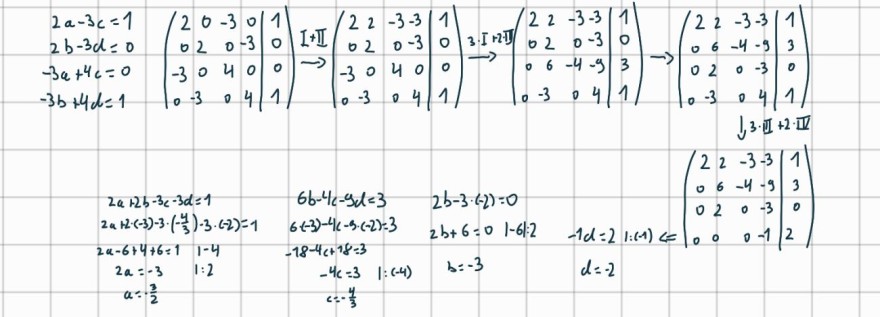 2a-3c=1
2b-3d=0
-3a+4c=0
-3b+4d=1
2 0 -3 0 | 1
0 2 0 -3 | 0
-3 0 4 0 | 0
0 -3 0 4 | 1
I+II →
2 2 -3 -3 | 1
0 2 0 -3 | 0
-3 0 4 0 | 0
0 -3 0 4 | 1
3·I+2·III →
2 2 -3 -3 | 1
0 2 0 -3 | 0
0 6 -4 -9 | 3
0 -3 0 4 | 1
→
2 2 -3 -3 | 1
0 6 -4 -9 | 3
0 2 0 -3 | 0
0 -3 0 4 | 1
↓ 3·III+2·IV
2 2 -3 -3 | 1
0 6 -4 -9 | 3
0 2 0 -3 | 0
0 0 0 -1 | 2
-1d=2 |:(-1) <=
d=-2
2b-3·(-2)=0
2b+6=0 |-6|:2
b=-3
6b-4c-9d=3
6·(-3)-4c-9·(-2)=3
-18-4c+18=3
-4c=3 |:(-4)
c=-4/3
2a+2b-3c-3d=1
2a+2·(-3)-3·(-4/3)-3·(-2)=1
2a-6+4+6=1 |-4
2a=-3 |:2
a=-3/2